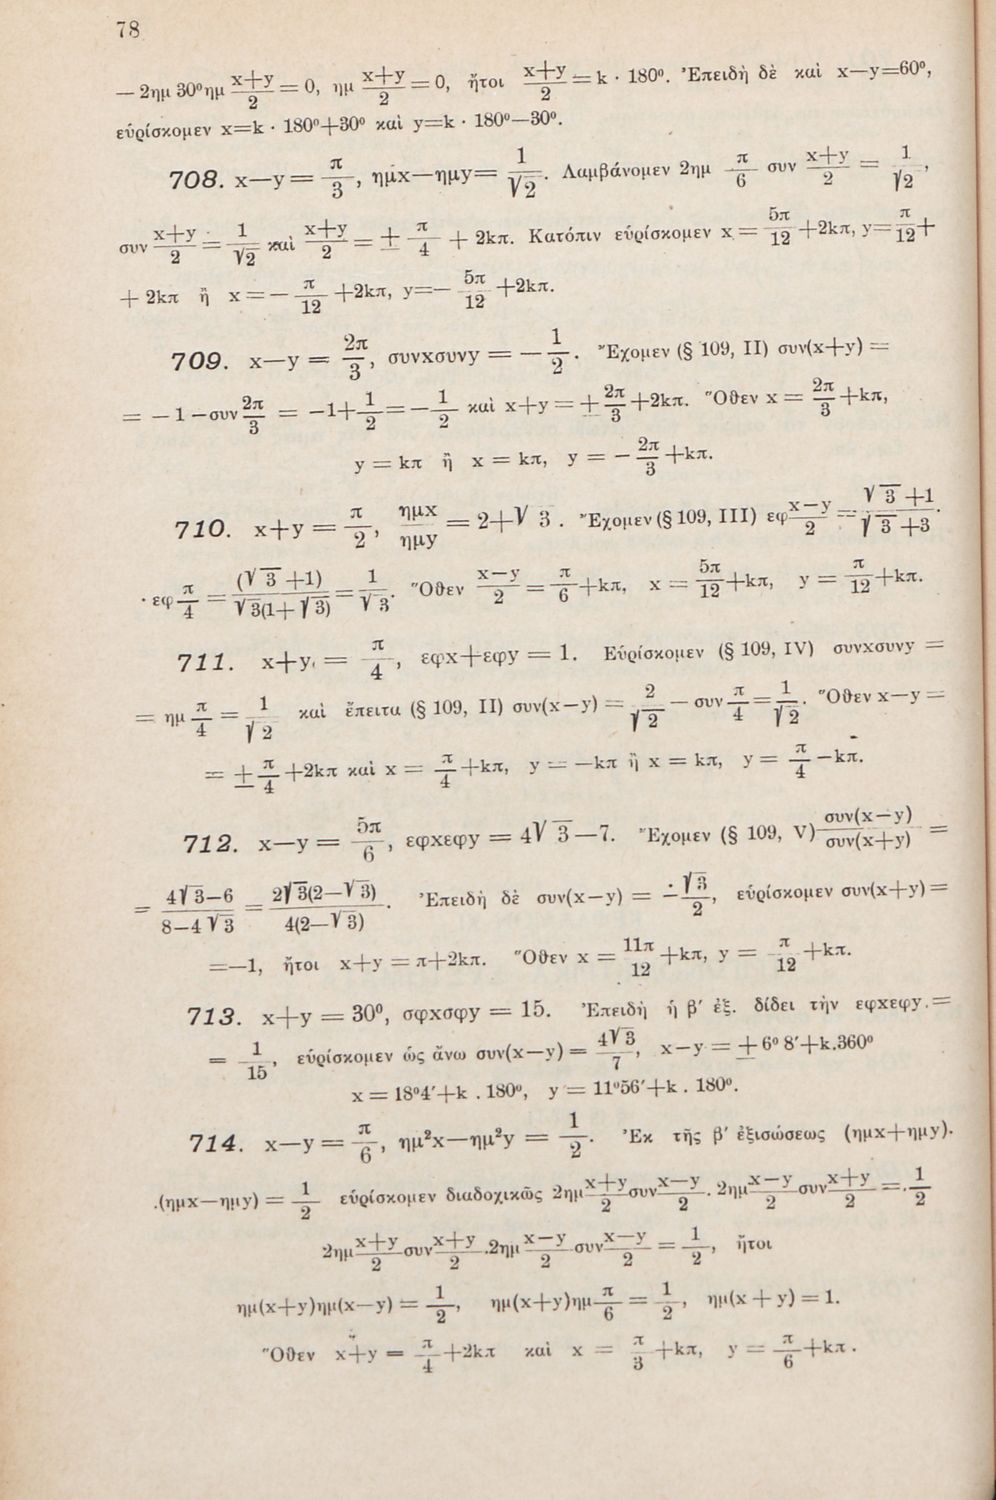 78
— 2ημ 30⁰ημ (x+y)/2 = 0, ημ (x+y)/2 = 0, ἤτοι (x+y)/2 = k · 180⁰. Ἐπειδὴ δὲ καὶ x—y=60⁰,
εὑρίσκομεν x=k · 180⁰+30⁰ καὶ y=k · 180⁰—30⁰.
708. x—y = π/3, ημx—ημy= 1/√2. Λαμβάνομεν 2ημ π/6 συν (x+y)/2 = 1/√2,
συν (x+y)/2 = 1/√2 καὶ (x+y)/2 = ± π/4 + 2kπ. Κατόπιν εὑρίσκομεν x = 5π/12 +2kπ, y= π/12 +
+ 2kπ ἢ x = — π/12 +2kπ, y=— 5π/12 +2kπ.
709. x—y = 2π/3, συνxσυνy = — 1/2. Ἔχομεν (§ 109, II) συν(x+y) =
= —1—συν 2π/3 = —1+ 1/2 = — 1/2 καὶ x+y = ± 2π/3 +2kπ. Ὅθεν x = 2π/3 +kπ,
y = kπ ἢ x = kπ, y = — 2π/3 +kπ.
710. x+y = π/2, ημx/ημy = 2+√3. Ἔχομεν (§ 109, III) εφ (x—y)/2 = (√3+1)/(√3+3) ·
· εφ π/4 = (√3+1)/(√3(1+√3)) = 1/√3. Ὅθεν (x—y)/2 = π/6 +kπ, x = 5π/12 +kπ, y = π/12 +kπ.
711. x+y = π/4, εφx+εφy = 1. Εὑρίσκομεν (§ 109, IV) συνxσυνy =
= ημ π/4 = 1/√2 καὶ ἔπειτα (§ 109, II) συν(x—y) = 2/√2 — συν π/4 = 1/√2. Ὅθεν x—y =
= ± π/4 +2kπ καὶ x = π/4 +kπ, y = —kπ ἢ x = kπ, y = π/4 —kπ.
712. x—y = 5π/6, εφxεφy = 4√3—7. Ἔχομεν (§ 109, V) συν(x—y)/συν(x+y) =
= (4√3—6)/(8—4√3) = 2√3(2—√3)/4(2—√3). Ἐπειδὴ δὲ συν(x—y) = — √3/2, εὑρίσκομεν συν(x+y) =
=—1, ἤτοι x+y = π+2kπ. Ὅθεν x = 11π/12 +kπ, y = π/12 +kπ.
713. x+y = 30⁰, σφxσφy = 15. Ἐπειδὴ ἡ β' ἐξ. δίδει τὴν εφxεφy =
= 1/15, εὑρίσκομεν ὡς ἄνω συν(x—y) = 4√3/7, x—y = ± 6⁰ 8'+k.360⁰
x = 18⁰4'+k . 180⁰, y = 11⁰56'+k . 180⁰.
714. x—y = π/6, ημ²x—ημ²y = 1/2. Ἐκ τῆς β' ἐξισώσεως (ημx+ημy).
.(ημx—ημy) = 1/2 εὑρίσκομεν διαδοχικῶς 2ημ (x+y)/2 συν (x—y)/2 . 2ημ (x—y)/2 συν (x+y)/2 = 1/2
2ημ (x+y)/2 συν (x+y)/2 .2ημ (x—y)/2 συν (x—y)/2 = 1/2, ἤτοι
ημ(x+y)ημ(x—y) = 1/2, ημ(x+y)ημ π/6 = 1/2, ημ(x + y) = 1.
Ὅθεν x+y = π/4 +2kπ καὶ x = π/3 +kπ, y = π/6 +kπ.